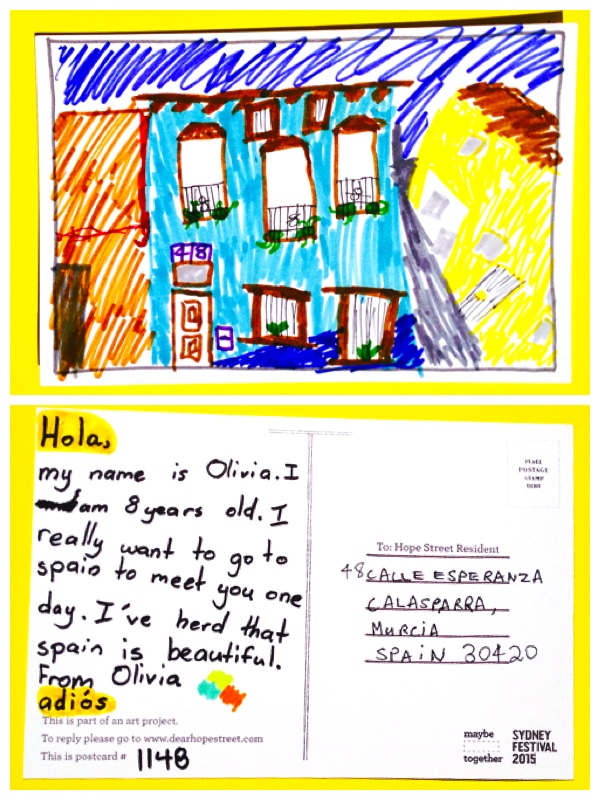 48
Hola,
my name is Olivia. I
am 8 years old. I
really want to go to
spain to meet you one
day. I've herd that
spain is beautiful.
From Olivia
adiós
This is part of an art project.
To reply please go to www.dearhopestreet.com
This is postcard # 1148
PLACE
POSTAGE
STAMP
HERE
To: Hope Street Resident
48 CALLE ESPERANZA
CALASPARRA,
MURCIA
SPAIN 30420
maybe
together
SYDNEY
FESTIVAL
2015